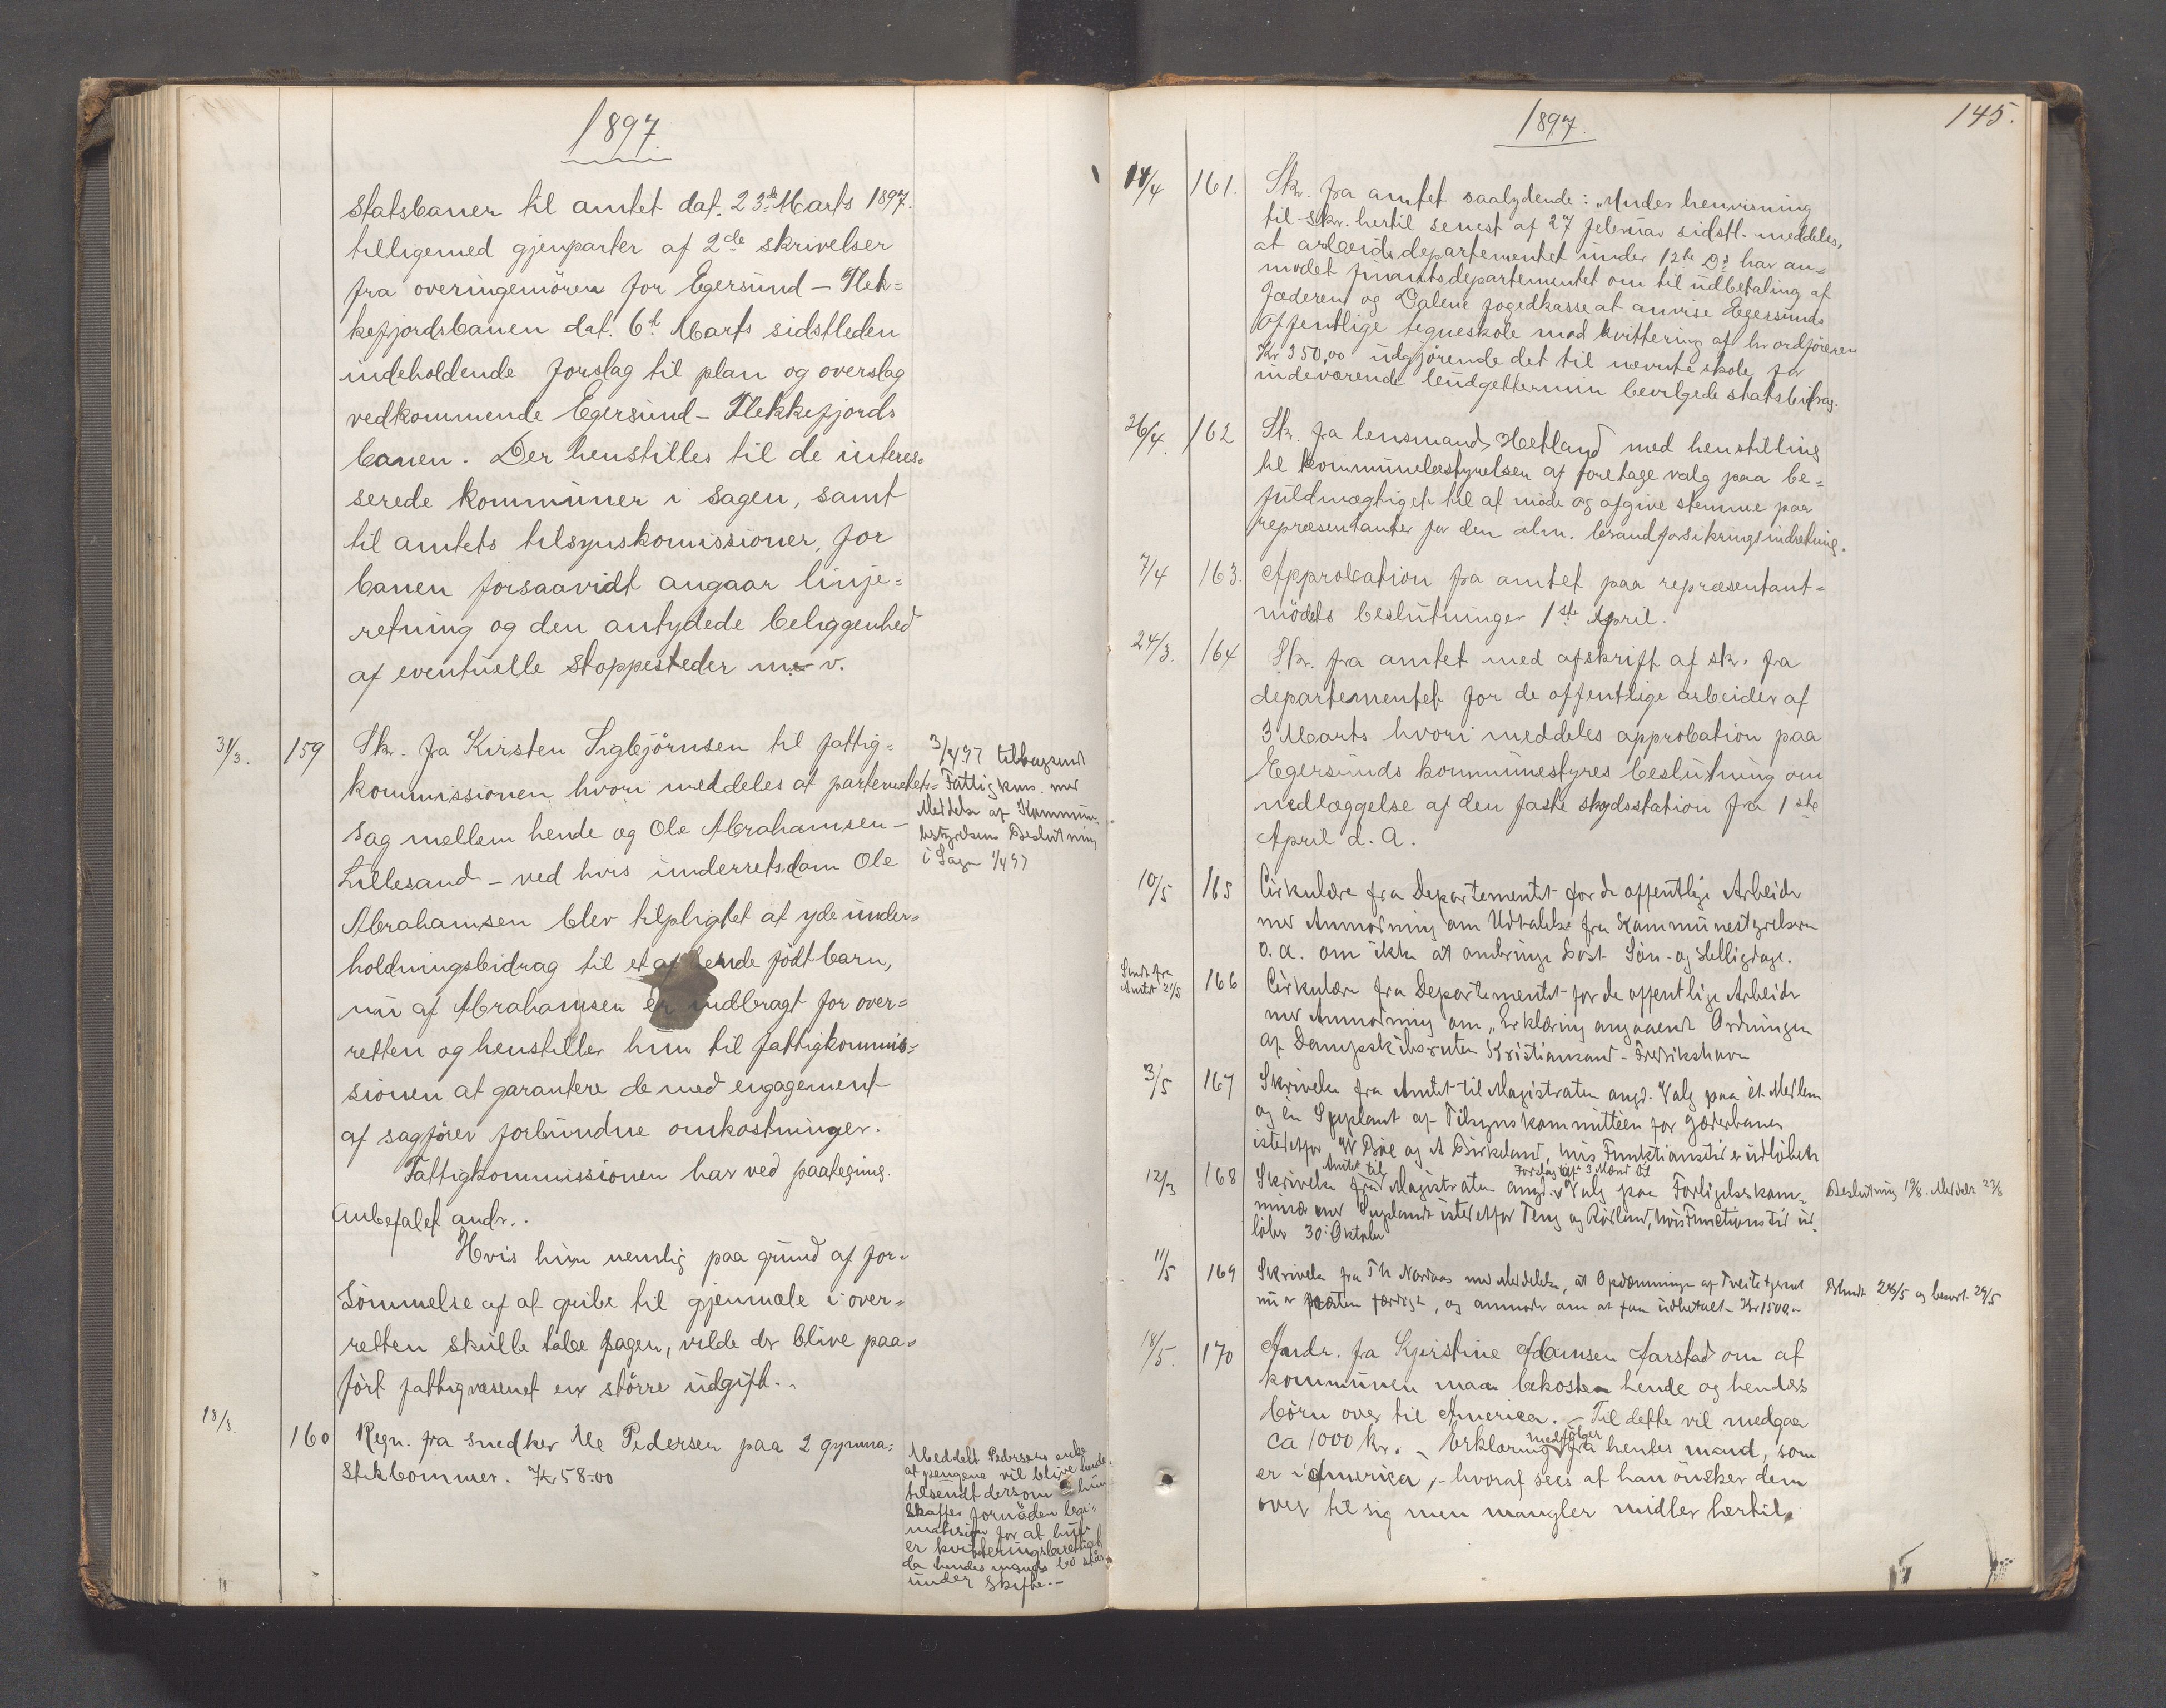 1897.
statsbaner til amtet dat. 23de Marts 1897.
tilligemed gjenparter af 2de skrivelser
fra overingeniören for Egersund – Flek=
kefjordsbanen dat. 6te Marts sidstleden
indeholdende forslag til plan og overslag
vedkommende Egersund – Flekkefjords
banen. Der henstilles til de interes=
serede kommuner i sagen, samt
til amtets tilsynskomissioner, for
banen forsaavidt angaar linje=
retning og den antydede beliggenhed
af eventuelle stoppesteder m. v.
31/3. 159 Skr. fra Kirsten Sigbjörnsen til fattig=
kommissionen hvori meddeles at paternitets=
sag mellem hende og Ole Abrahamsen –
Lillesand – ved hvis underretsdom Ole
Abrahamsen blev tilpligtet at yde under=
holdningsbidrag til et af hende födt barn,
nu af Abrahamsen er indbragt for over=
retten og henstiller hun til fattigkommis=
sionen at garantere de med engagement
af sagförer forbundne omkostninger.
Fattigkommissionen har ved paategning
anbefalet andr.
Hvis hun nemlig paa grund af for=
sömmelse af at gribe til gjenmæle i over=
retten skulle tabe sagen, vilde der blive paa=
fört fattigvæsenet en större udgift.
3/4 97 tilbagesendt
Fattigkms. med
Meddelse af Kommune-
bestyrelsens Beslutning
i Sagen 1/4 97
18/3. 160 Regn. fra snedker Ole Pedersen paa 2 gymna=
stikbommer. Kr 58.00
Meddelt Pedersens enke
at pengene vil blive hende
tilsendt dersom hun
skaffer fornöden legi=
mation for at hun
er kvitteringsberettiget
da hendes mands bo står
under skifte. –
145.
1897.
14/4 161. Skr. fra amtet saalydende: „Under henvisning
til skr. hertil senest af 27 februar sidstl. meddeles,
at arbeidsdepartementet under 12te Ds har an=
modet finantsdepartementet om til udbetaling af
Jæderen og Dalene fogedkasse at anvise Egersunds
offentlige tegneskole mod kvittering af hr ordföreren
Kr 350,00 udgjörende det til nævnte skole for
indeværende budgettermin bevilgede statsbidrag.
26/4. 162 Sk. fra lensmand Hetland med henstilling
til kommunebestyrelsen at foretage valg paa be=
fuldmægtiget til at möde og afgive stemme paa
repræsentanter for den alm. brandforsikringsindretning.
7/4 163. Approbation fra amtet paa repræsentant=
mödets beslutninger 1ste April.
24/3. 164 Skr. fra amtet med afskrift af sk. fra
departementet for de offentlige arbeider af
3 Marts hvori meddeles approbation paa
Egersunds kommunestyres beslutning om
nedlæggelse af den faste skydsstation fra 1ste
April d. A.
10/5 165 Cirkulære fra Departementet for de offentlige Arbeider
med Anmodning om Udtalelse fra Kommunestyrelsen
o.a. om ikke at ombringe Post Sön- og Helligdage.
Sendt fra
Amtet 21/5 166 Cirkulære fra Departementet for de offentlige Arbeider
med Anmodning om „Erklæring angaaende Ordningen
af Dampskibsruten Kristiansand – Fredrikshavn
3/5 167 Skrivelse fra Amtet til Magistraten angd. Valg paa èt Medlem
og èn Suppleant af Tilsynskommitteen for Jæderbanen
istedetfor W Böe og A Birkeland, hvis Funktionstid er udlöbet
12/3 168 Skrivelse fra Amtet til Magistraten angd. Forslag til 3 Mænd til Valg paa Forligelseskom=
misær med Suppleant istedetfor Teng og Rödland, hvis Functionstid ud=
löber 30: Oktober
Beslutning 19/8. Meddelt 23/8
11/5 169 Skrivelse fra Th Nordaas med Meddelelse, at Opdæmningen af Tveitetjernet
nu er færdig, og anmoder om at faa udbetalt Kr 1500,-
Behandl. 24/5 og besvart 29/5
18/5. 170 Andr. fra Kjerstine Adamsen Aarstad om at
kommunen maa bekoste hende og hendes
börn over til America. – Til dette vil medgaa
ca 1000 kr. – Erklæring medfölger fra hendes mand, som
er i America, – hvoraf sees at han önsker dem
over til sig men mangler midler hertil.